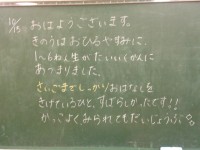 10/15 おはようございます。
きのうはおひるやすみに、
1〜6ねん生がたいいくかんに
あつまりました。
さいごまでしっかりおはなしを
きけているひと、すばらしかったです!!
かっこよくみられてもだいじょうぶ